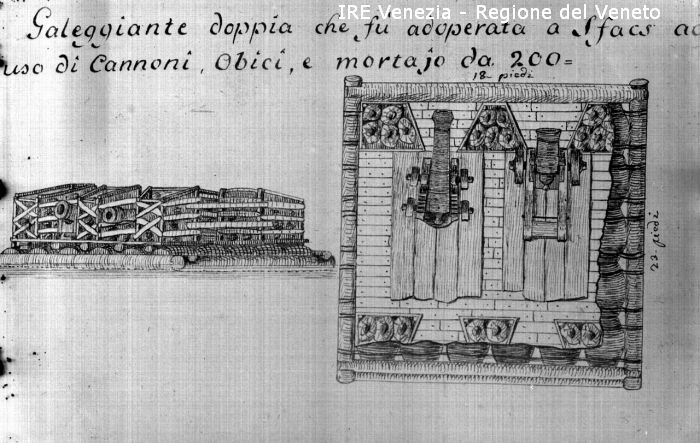 IRE Venezia - Regione del Veneto
Galeggiante doppia che fù adoperata a Sfacs ad
uso di Cannoni, Obici, e mortajo da 200=
18 piedi
22 piedi